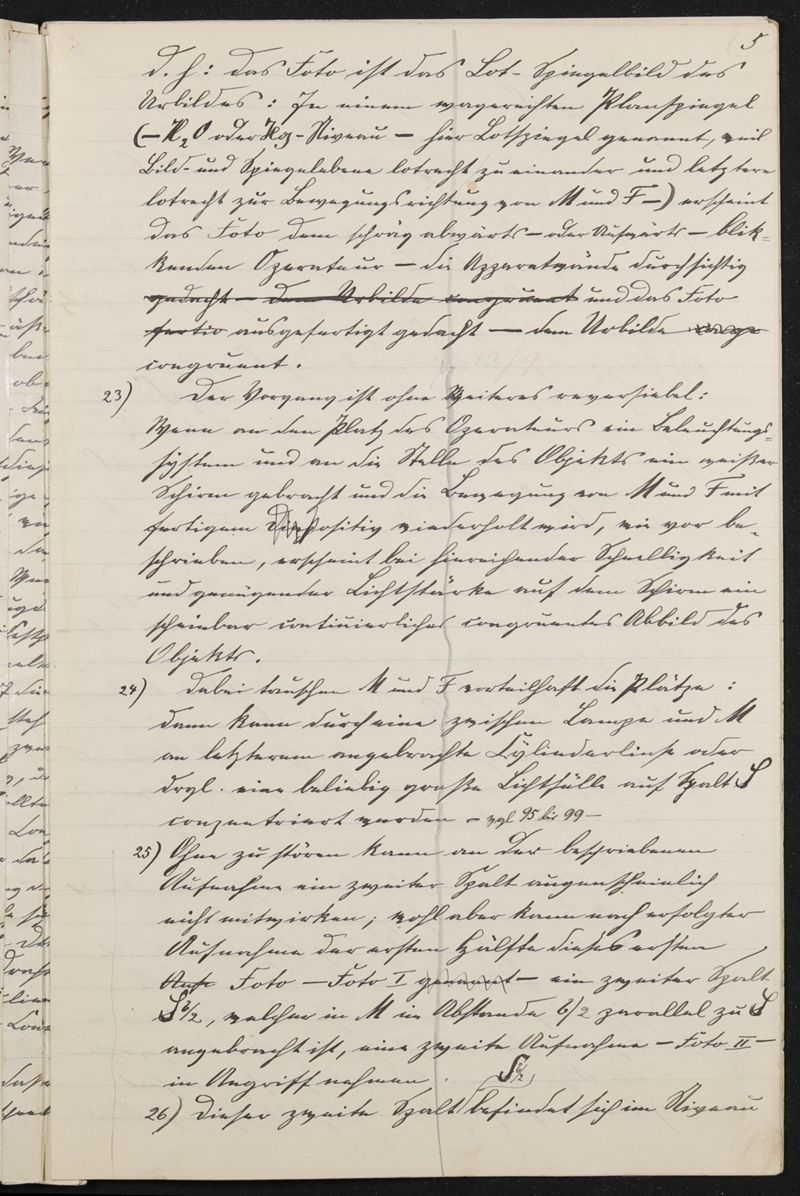 5
d. h: das Foto ist das Lot-Spiegelbild des
Urbildes: In einem wagerechten Planspiegel
(–H₂O oder Hg-Niveau – hier Lotspiegel genannt, weil
Bild- und Spiegelebene lotrecht zu einander und letztere
lotrecht zur Bewegungsrichtung von M und F –) erscheint
das Foto dem schräg abwärts – oder Aufwärts – blik-
kenden Operateur – die Apparatwände durchsichtig
gedacht – dem Urbilde congruent und das Foto
fertig ausgefertigt gedacht – dem Urbilde
congruent.
23) Der Vorgang ist ohne Weiteres reversiebel:
Wenn an den Platz des Operateurs ein Beleuchtungs-
system und an die Stelle des Objekts ein weißer
Schirm gebracht und die Bewegung von M und F mit
fertigem Diapositiv wiederholt wird, wie vor be-
schrieben, erscheint bei hinreichender Schnelligkeit
und genügender Lichtstärke auf dem Schirm ein
scheinbar continuierliches congruentes Abbild des
Objekts.
24) Dabei tauschen M und F vorteilhaft die Plätze:
dann kann durch eine zwischen Lampe und M
an letzterem angebrachte Cylinderlinse oder
drgl. eine beliebig große Lichtfülle auf Spalt S
conzentriert werden – vgl 95 bis 99 –
25) Ohne zu stören kann an der beschriebenen
Aufnahme ein zweiter Spalt augenscheinlich
nicht mitwirken; wohl aber kann nach erfolgter
Aufnahme der ersten Hälfte dieses ersten
Aufn Foto – Foto I genannt – ein zweiter Spalt
S b/2, welcher in M im Abstande b/2 parallel zu S
angebracht ist, eine zweite Aufnahme – Foto II –
in Angriff nehmen.
S b/2
26) Dieser zweite Spalt befindet sich im Niveau